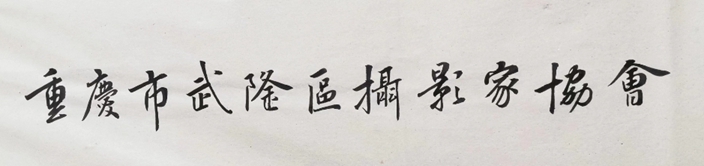 重慶市武隆區攝影家協會